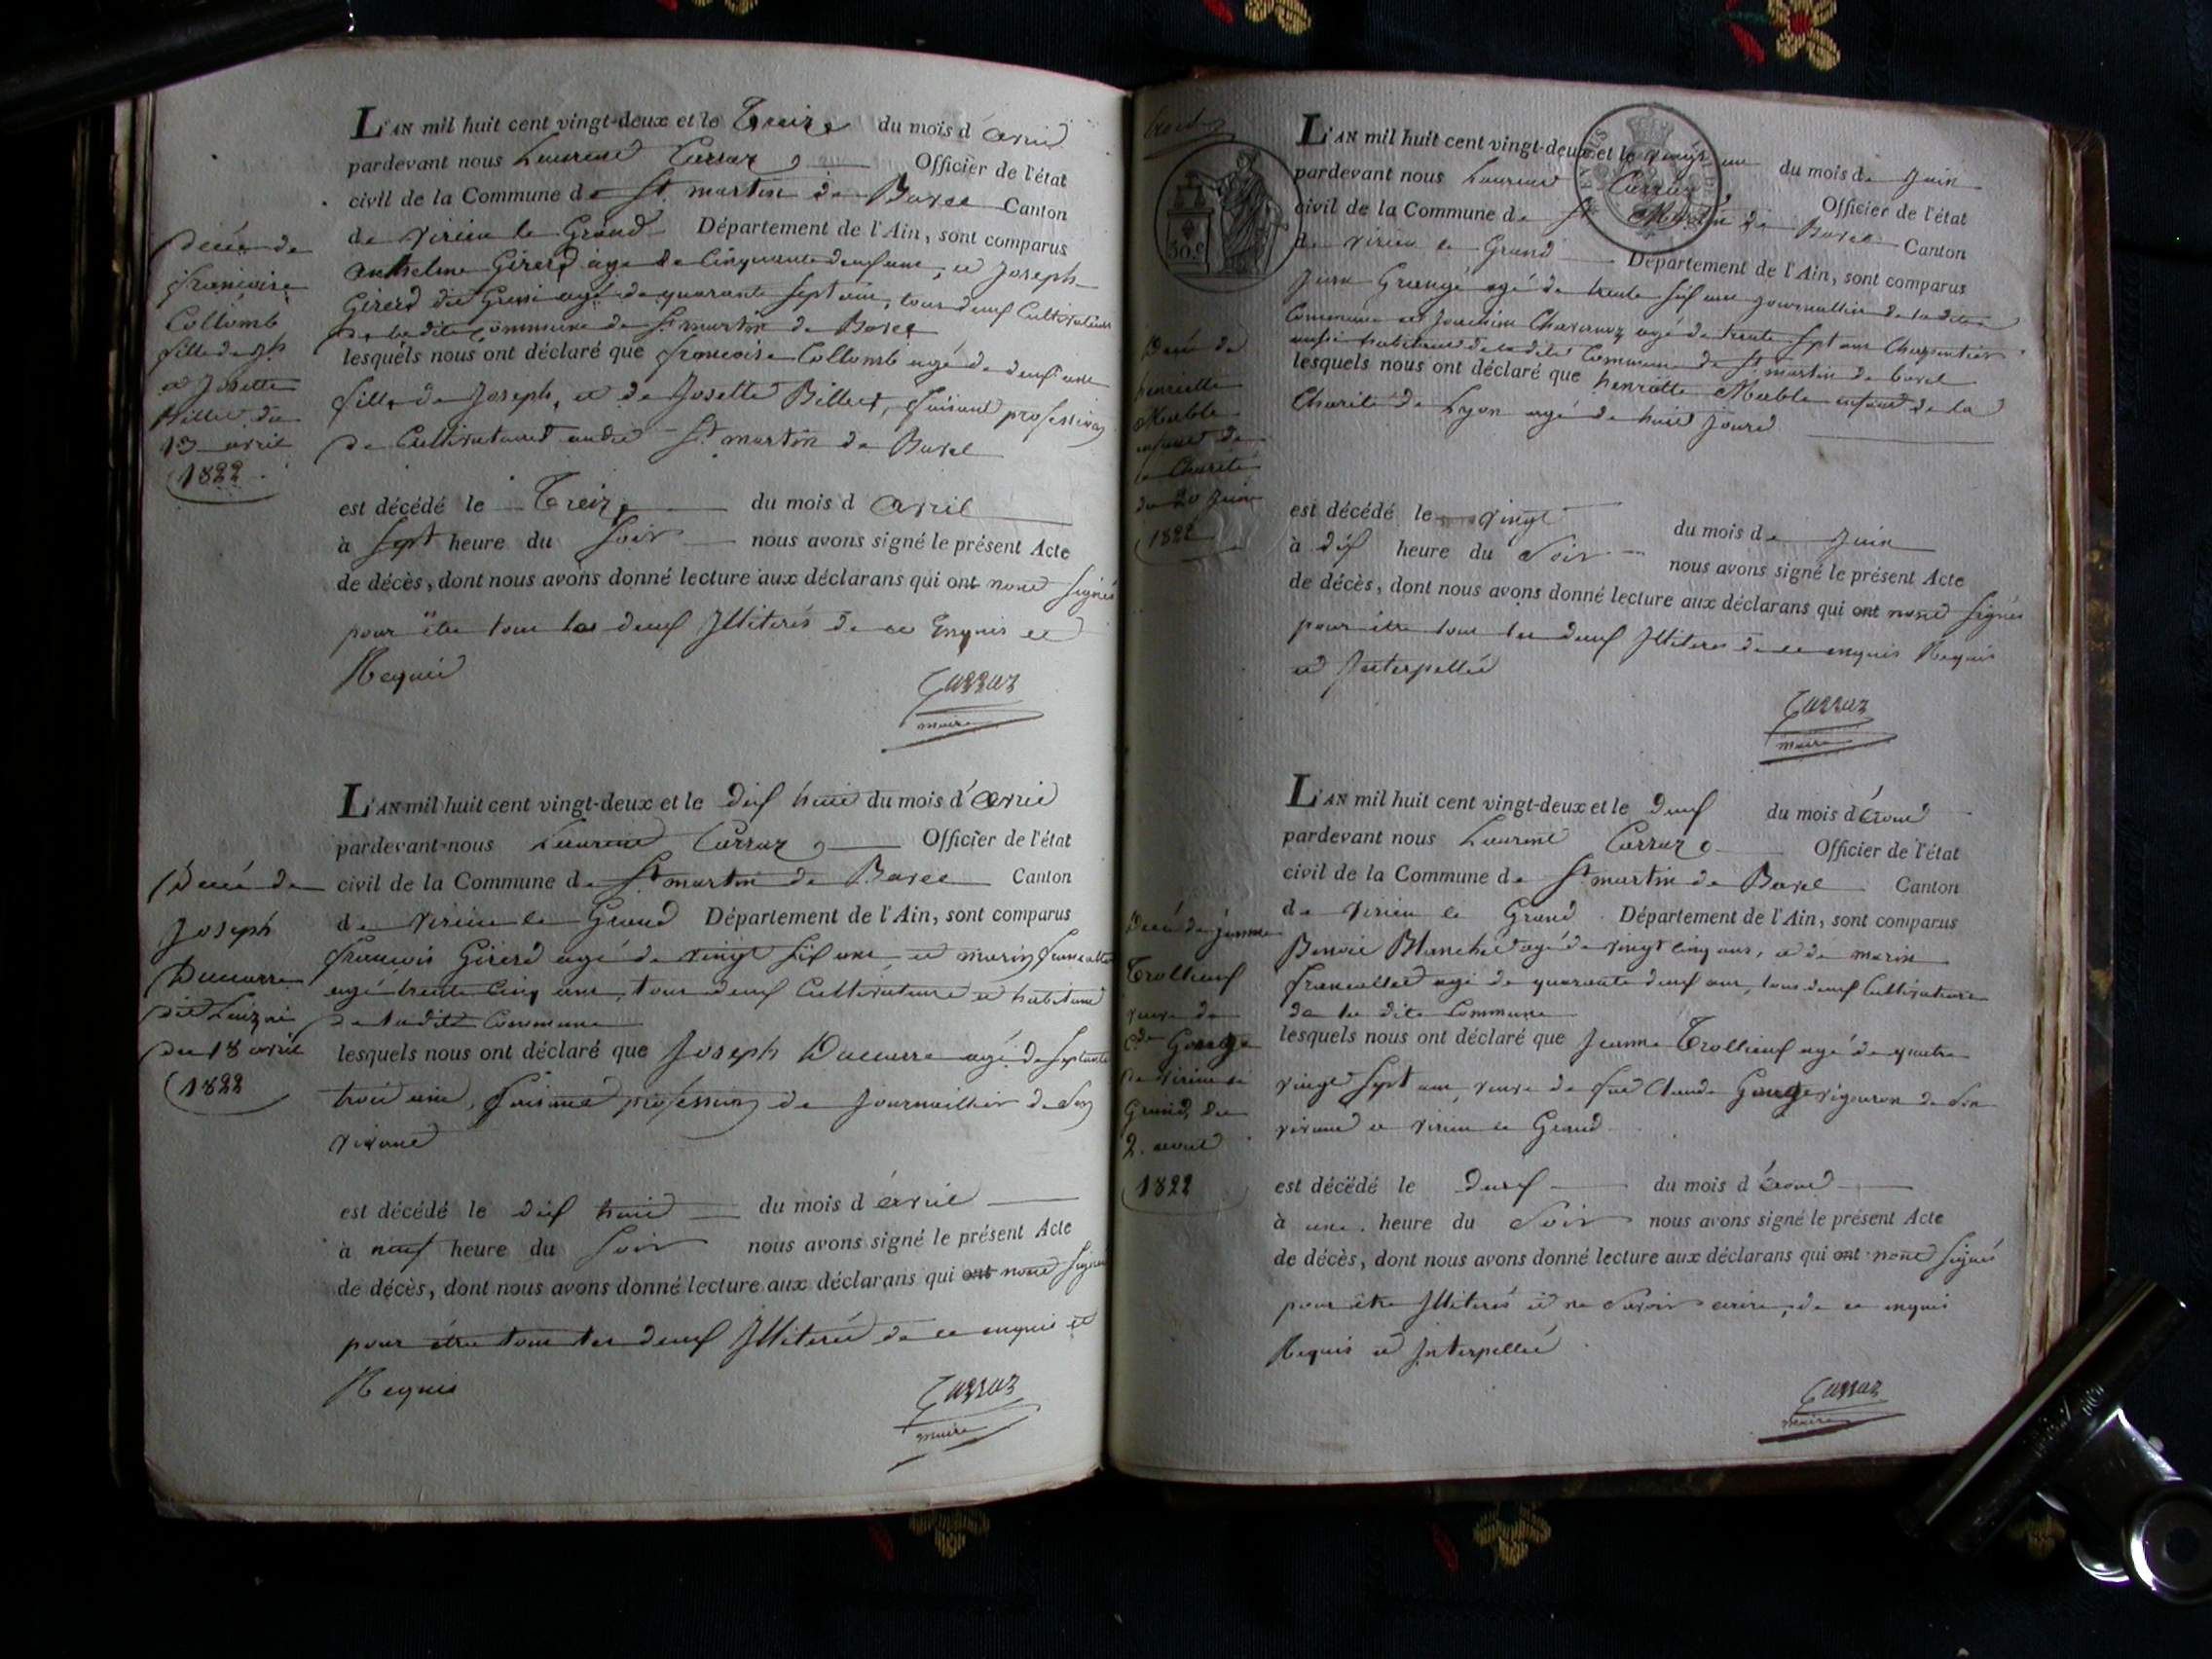 L'AN mil huit cent vingt-deux et le Treize du mois d'avril
pardevant nous Laurent Carraz Officier de l'état
civil de la Commune de St martin de Bavel Canton
de virieu le Grand Département de l'Ain, sont comparus
anthelme Girerd agé de Cinquante deux ans, et Joseph
Girerd dit agé de quarante sept ans, tous deux Cultivateurs
de ladite commune de St martin de Bavel
lesquels nous ont déclaré que francoise Collomb agé de deux ans
fille de Joseph, et de Josette Billet, faisant profession
de Cultivateur audit St martin de Bavel
est décédé le Treize du mois d avril
à sept heure du soir nous avons signé le présent Acte
de décès, dont nous avons donné lecture aux déclarans qui ont nont signés
pour être tous les deux Illiterés de ce Enquis et
Requis
Carraz
maire
Décés de
francoise
Collomb
fille de jph
et Josette
Billet du
13 avril
1822
L'AN mil huit cent vingt-deux et le dix huit du mois d'avril
pardevant-nous Laurent Carraz Officier de l'état
civil de la Commune de St martin de Bavel Canton
de virieu le Grand Département de l'Ain, sont comparus
francois Girerd agé de vingt six ans, et marin francallet
agé trente cinq ans, tous deux Cultivateurs et habitans
de ladite Commune
lesquels nous ont déclaré que Joseph Ducarre agé de septante
trois ans, faisant profession de Journaillier de son
vivant
est décédé le dix huit du mois d avril
à neuf heure du soir nous avons signé le présent Acte
de décès, dont nous avons donné lecture aux déclarans qui ont nont signés
pour être tous les deux Illiterés de ce enquis et
Requis
Carraz
maire
Décés de
Joseph
Ducarre
dit
du 18 avril
1822
L'AN mil huit cent vingt-deux et le vingt un du mois de Juin
pardevant nous Laurent Carraz Officier de l'état
civil de la Commune de St Martin de Bavel Canton
de virieu le Grand Département de l'Ain, sont comparus
Jean Grangé agé de trente six ans journallier de la dite
Commune et Joachim Charvnoz agé de trente sept ans Charpentier
aussi habitant de ladite Commune de St martin de bavel
lesquels nous ont déclaré que henriette Mable enfant de la
Charité de Lyon agé de huit jours
est décédé le vingt du mois de Juin
à dix heure du Soir nous avons signé le présent Acte
de décès, dont nous avons donné lecture aux déclarans qui ont nont signés
pour être tous les deux Illiteres de ce enquis Requis
et Interpellés
Carraz
maire
30 c
Décés de
henriette
Mable
enfant de
la Charité
du 20 Juin
1822
L'AN mil huit cent vingt-deux et le deux du mois d'aout
pardevant nous Laurent Carraz Officier de l'état
civil de la Commune de St martin de Bavel Canton
de virieu le Grand Département de l'Ain, sont comparus
Benoit Blanchet agé de vingt cinq ans, et de marin
francallet agé de quarante deux ans, tous deux Cultivateurs
de la dite Commune
lesquels nous ont déclaré que Jeanne Trollieux agé de quatre
vingt sept ans, veuve de feu Claude Gorge vigneron de son
vivant a virieu le Grand
est décédé le deux du mois d'aout
à une heure du Soir nous avons signé le présent Acte
de décès, dont nous avons donné lecture aux déclarans qui ont nont signés
pour être Illiterés et ne Savoir ecrire, de ce enquis
Requis et Interpellés
Carraz
maire
Décés de Jeanne
Trollieux
veuve de
Cde Gorge
de virieu le
Grand, du
2.
1822